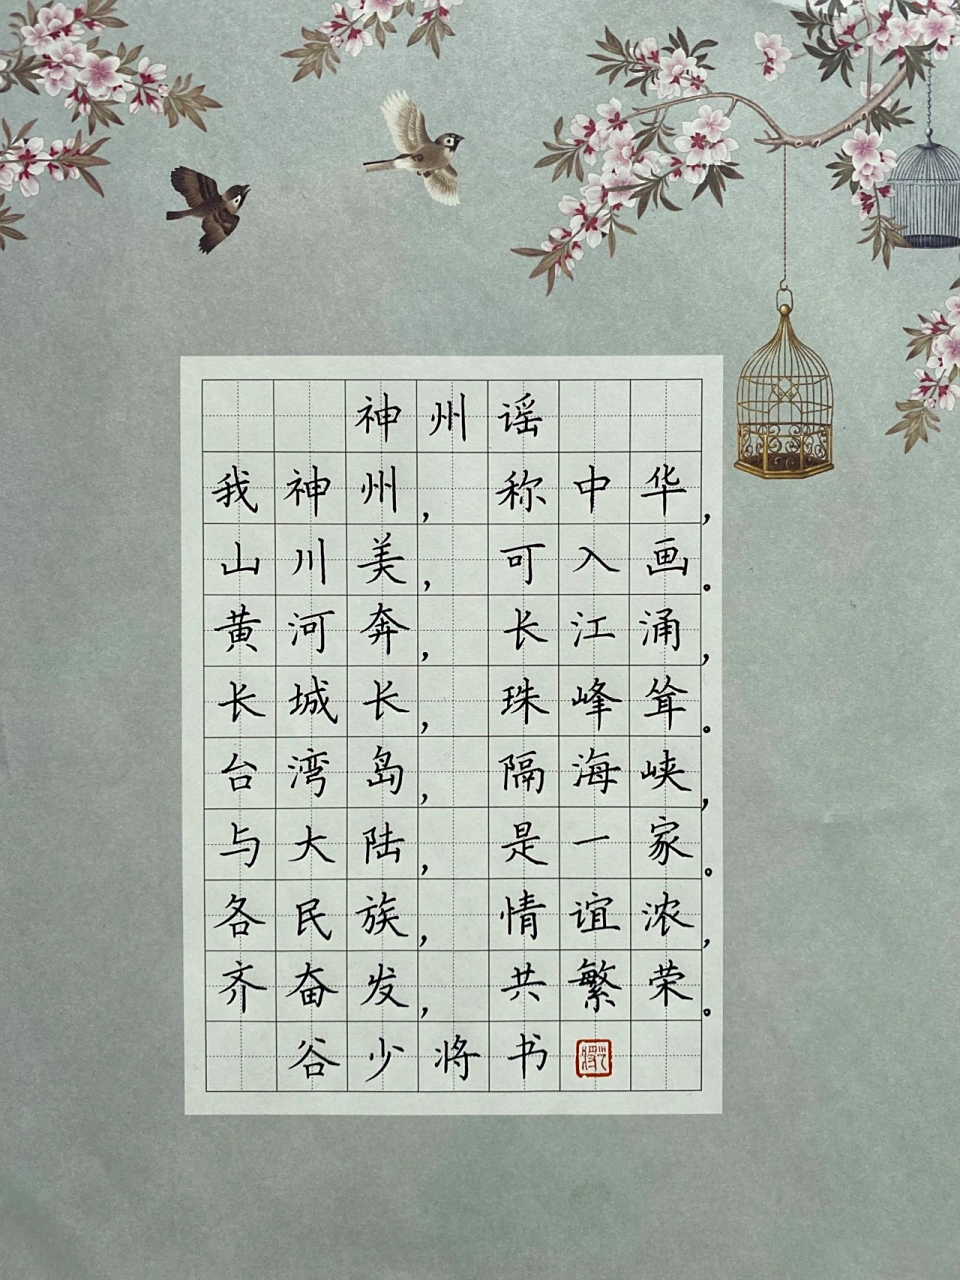 神州谣
我神州，称中华，
山川美，可入画。
黄河奔，长江涌，
长城长，珠峰耸。
台湾岛，隔海峡，
与大陆，是一家。
各民族，情谊浓，
齐奋发，共繁荣。
谷少将书